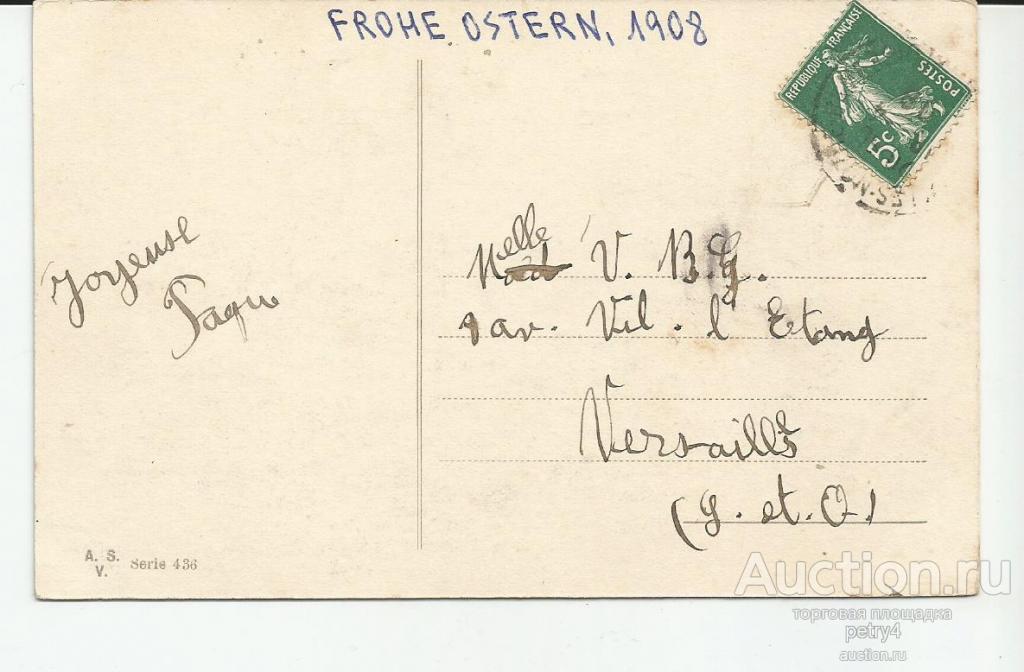 FROHE OSTERN, 1908
RÉPUBLIQUE FRANÇAISE
POSTES
5c
Joyeuse
Paque
Melle V. B. G.
9 av. Vil. l'Etang
Versailles
(S. et. O)
A. S.
V.
Serie 436
Auction.ru
торговая площадка
petry4
auction.ru